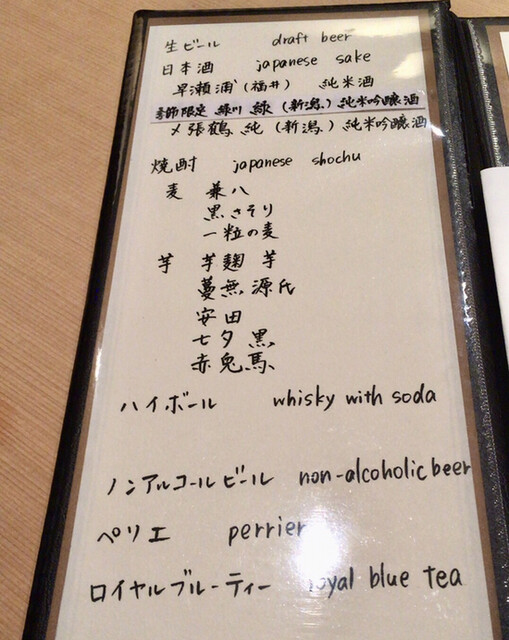 生ビール draft beer
日本酒 japanese sake
早瀬浦 (福井) 純米酒
季節限定 緑川 緑 (新潟) 純米吟醸酒
〆張鶴 純 (新潟) 純米吟醸酒
焼酎 japanese shochu
麦 兼八
黒さそり
一粒の麦
芋 芋麹 芋
蔓無源氏
安田
七夕 黒
赤兎馬
ハイボール whisky with soda
ノンアルコールビール non-alcoholic beer
ペリエ perrier
ロイヤルブルーティー royal blue tea